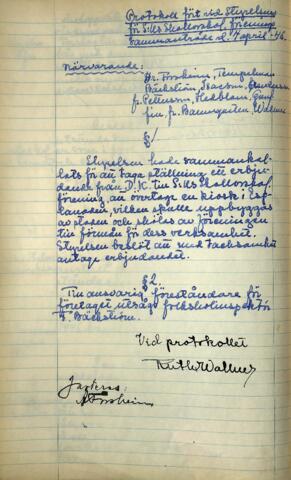 Protokoll fört vid Styrelsens
för S:lls Skollovskol. förenings
sammanträde d. 7 april - 46.
Närvarande:
Hr. Forsheim, Tempelman
Bäckström, Isacson,
fr. Pettersson, Hedblom,
frn. fr. Baumgarten, Wallner
§ 1
Styrelsen hade sammankal-
lats för att taga ställning till erbju-
dande från D.K. till S:lls Skollovskol.
förening, att övertaga en kiosk i Esp-
lanaden, vilken skulle uppbyggas
av staden och skötas av föreningen
till förmån för dess verksamhet.
Styrelsen beslöt att med tacksamhet
antaga erbjudandet.
§ 2
Till ansvarig föreståndare för
företaget utsågs folkskoleinspektör
Bäckström.
Vid protokollet
Ruth Wallner
Justeras:
Forsheim